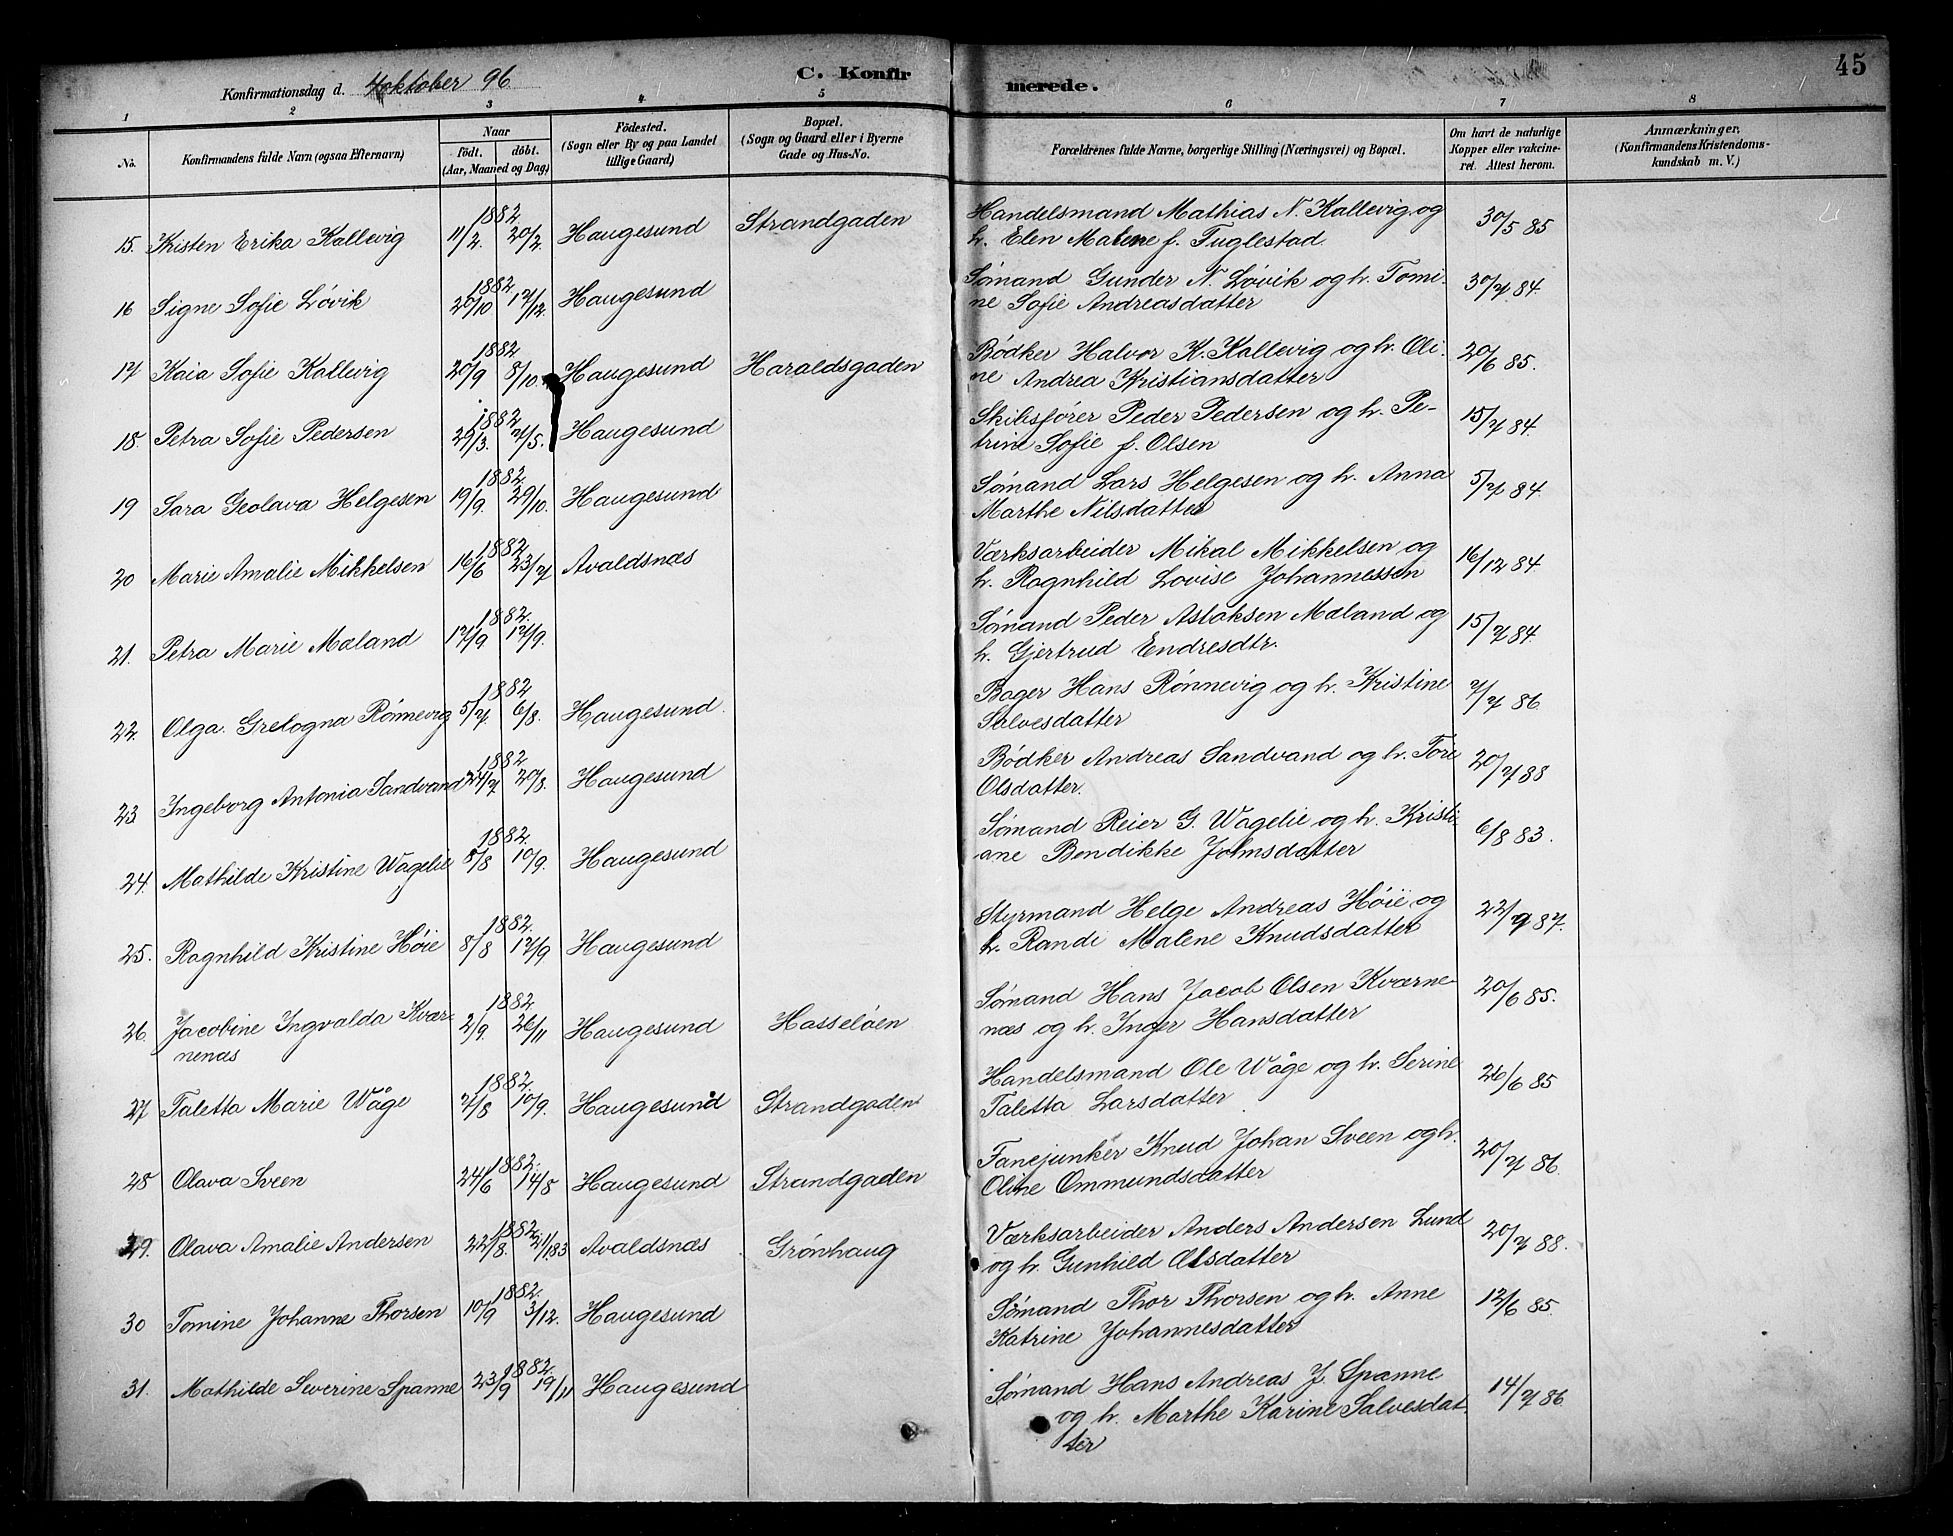 45
C. Konfirmerede.
Konfirmationsdag d. 4 oktober 96
1 2 3 4 5 6 7 8
No. | Konfirmandens fulde Navn (ogsaa Efternavn) | Naar født. døbt. (Aar, Maaned og Dag) | Fødested. (Sogn eller By og paa Landet tillige Gaard) | Bopæl. (Sogn og Gaard eller i Byerne Gade og Hus-No. | Forældrenes fulde Navne, borgerlige Stilling (Næringsvei) og Bopæl. | Om havt de naturlige Kopper eller vakcineret. Attest herom. | Anmærkninger, (Konfirmandens Kristendomskundskab m. V.)
15. Kristen Erika Kallevig | 1882 11/2. 20/2. | Haugesund | Strandgaden | Handelsmand Mathias N. Kallevig og
h. Elen Malene f. Fuglestad | 30/5 85
16 Signe Sofie Løvik | 1882 20/10 17/12. | Haugesund | Sømand Gunder N. Løvik og h. Tomi-
ne Sofie Andreasdatter | 30/7 84.
17 Kaia Sofie Kallevig | 1882 20/9 8/10. | Haugesund | Haraldsgaden | Bødker Halvor K. Kallevig og h. Oli-
ne Andrea Kristiansdatter | 20/6 85.
18. Petra Sofie Pedersen | 1882 29/3. 7/5. | Haugesund | Skibsfører Peder Pedersen og h. Pe-
trine Sofie f. Olsen | 15/7 84.
19 Sara Geolava Helgesen | 1882 19/9. 29/10. | Haugesund | Sømand Lars Helgesen og h. Anna
Marthe Nilsdatter | 5/7 84.
20 Marie Amalie Mikkelsen | 1882 16/6 23/7 | Avaldsnæs | Værksarbeider Mikal Mikkelsen og
h. Ragnhild Lovise Johannessen | 16/12 84
21. Petra Marie Maland | 1882. 12/9 17/9. | Sømand Peder Aslaksen Maland og
h. Gjertrud Endresdtr. | 15/7 84
22. Olga Grelogna Rønnevig | 1882 5/7. 6/8. | Haugesund. | Bager Hans Rønnevig og h. Kristine
Salvesdatter | 7/7 86
23 Ingeborg Antonia Sandvand | 1882 24/7 20/8. | Haugesund | Bødker Andreas Sandvand og h. Tore
Olsdatter. | 20/7 88
24. Mathilde Kristine Wågelie | 1882 8/8 10/9. | Haugesund | Sømand Reier G. Wågelie og h. Kristi-
ane Bendikke Johnsdatter | 6/8 83.
25. Ragnhild Kristine Høie | 1882. 8/8 17/9 | Haugesund | Styrmand Helge Andreas Høie og
h. Randi Malene Knudsdatter | 22/9 87.
26. Jacobine Ingvalda Kvær-
nenæs | 1882 2/9. 26/11 | Haugesund | Hasseløen | Sømand Hans Jacob Olsen Kværne-
næs og h. Inger Hansdatter | 20/6 85.
27 Taletta Marie Wåge | 1882. 27/8 10/9. | Haugesund | Strandgaden | Handelsmand Ole Wåge og h. Serine
Taletta Larsdatter | 26/6 85
28 Olava Sveen | 1882. 24/6 14/8 | Haugesund | Strandgaden | Fanejunker Knud Johan Sveen og h.
Oline Ommundsdatter | 20/7 86.
29. Olava Amalie Andersen | 1882 22/8. 21/1 83 | Avaldsnæs | Grønhaug | Værksarbeider Anders Andersen Lund
og h. Gunhild Olsdatter | 20/7 88.
30 Tomine Johanne Thorsen | 1882. 10/9 3/12. | Haugesund | Sømand Thor Thorsen og h. Anne
Katrine Johannesdatter | 12/6 85.
31. Mathilde Severine Spanne | 1882. 23/9 19/11 | Haugesund | Sømand Hans Andreas J. Spanne
og h. Marthe Karine Salvesdat-
ter | 14/7 86